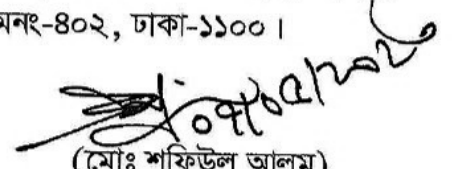 মনং-৪০২, ঢাকা-১১০০।
(মোঃ শফিউল আলম)